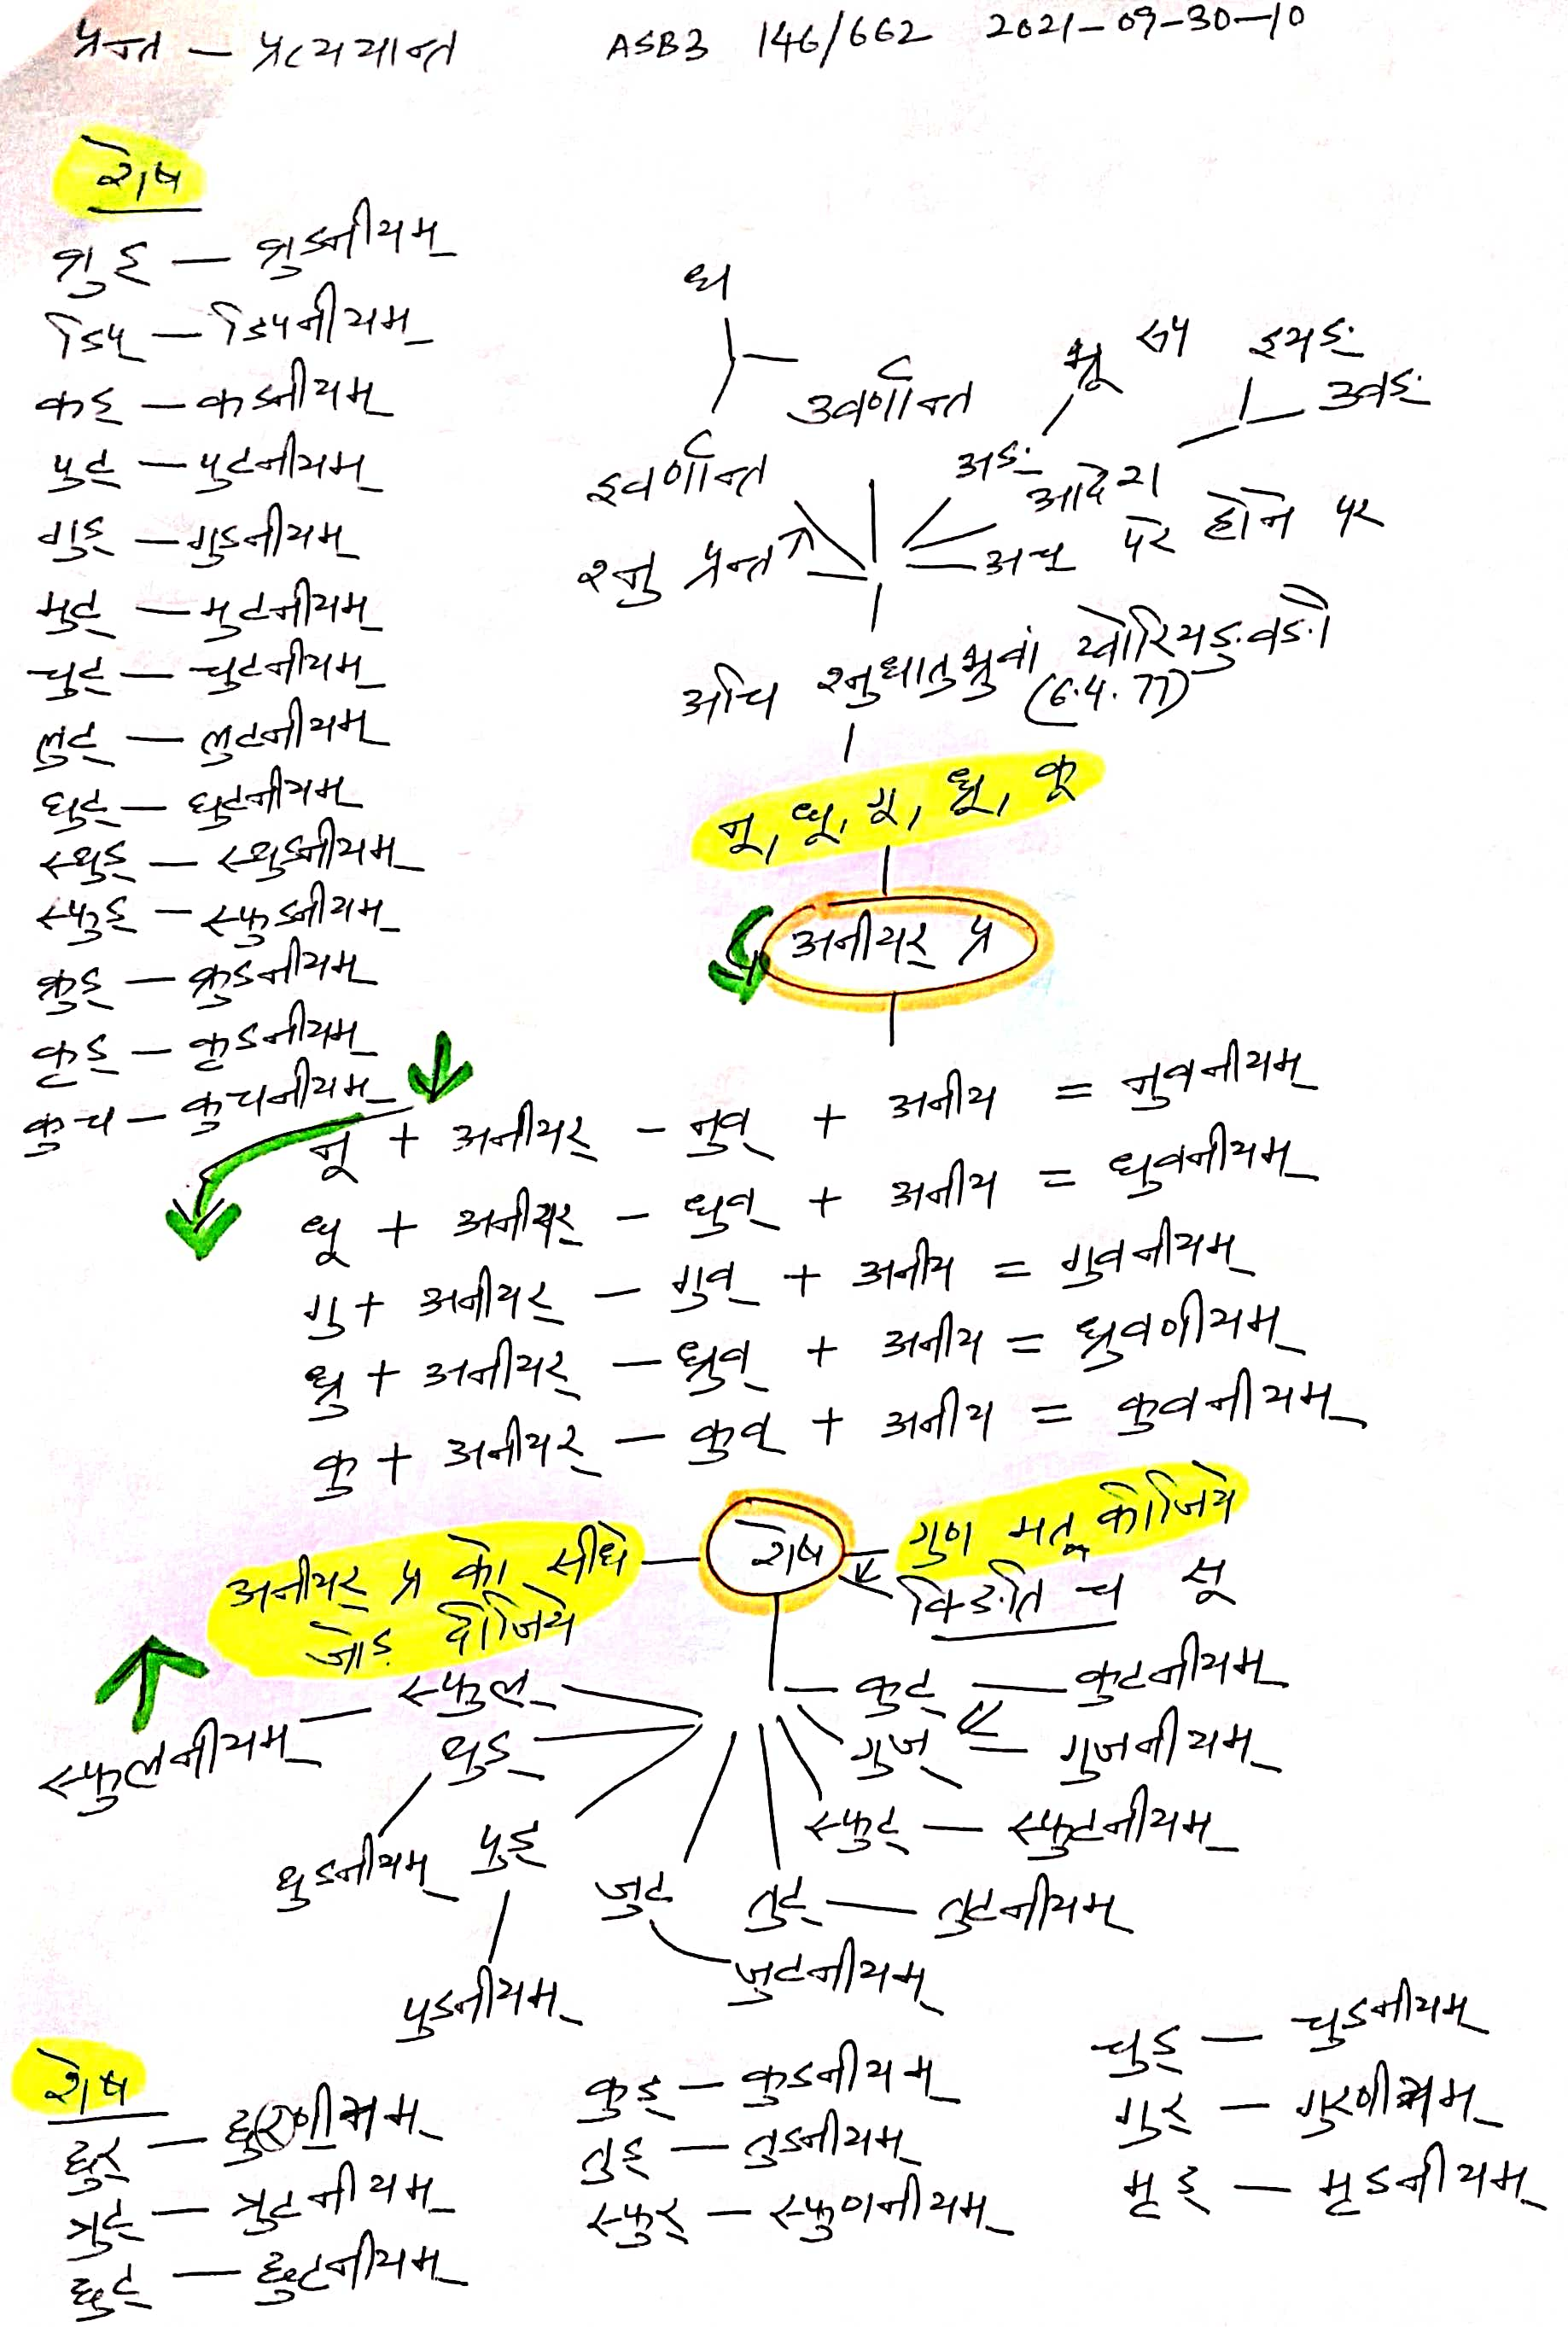 प्रन्त – प्रत्ययान्त ASB3 146/662 2021-09-30-10
शेष
भ्रुड् – भ्रुडनीयम्
डिप् – डिपनीयम्
कड् – कडनीयम्
पुट् – पुटनीयम्
गुड् – गुडनीयम्
मुट् – मुटनीयम्
चुट् – चुटनीयम्
लुट् – लुटनीयम्
घुट् – घुटनीयम्
स्थुड् – स्थुडनीयम्
स्फुड् – स्फुडनीयम्
क्रुड् – क्रुडनीयम्
कृड् – कृडनीयम्
कुच – कुचनीयम्
उवर्णान्त
इवर्णान्त
भ्रू रूप
इयङ्
उवङ्
अङ्ग
आदेश
श्नु प्रन्त
अच् परे होने पर
अचि श्नुधातुभ्रुवां य्वोरियङुवङौ
(6.4.77)
नू, धू, गु, ध्रु, कु
अनीयर् प्र
नू + अनीयर् – नुव् + अनीय = नुवनीयम्
धू + अनीयर् – धुव् + अनीय = धुवनीयम्
गु + अनीयर् – गुव् + अनीय = गुवनीयम्
ध्रु + अनीयर् – ध्रुव् + अनीय = ध्रुवणीयम्
कु + अनीयर् – कुव् + अनीय = कुवनीयम्
अनीयर् प्र को सीधे
जोड़ दीजिये
शेष
गुण मत् कीजिये
क्ङिति च सू
कुट् – कुटनीयम्
गुज् – गुजनीयम्
स्फुट् – स्फुटनीयम्
तुट् – तुटनीयम्
जुट
जुटनीयम्
पुड्
पुडनीयम्
थुड्
थुडनीयम्
स्फुल्
स्फुलनीयम्
शेष
छुर् – छुरणीयम्
त्रुट् – त्रुटनीयम्
छुट् – छुटनीयम्
कुड् – कुडनीयम्
तुड् – तुडनीयम्
स्फुर् – स्फुणनीयम्
चुड् – चुडनीयम्
गुर् – गुरणीयम्
मृड् – मृडनीयम्